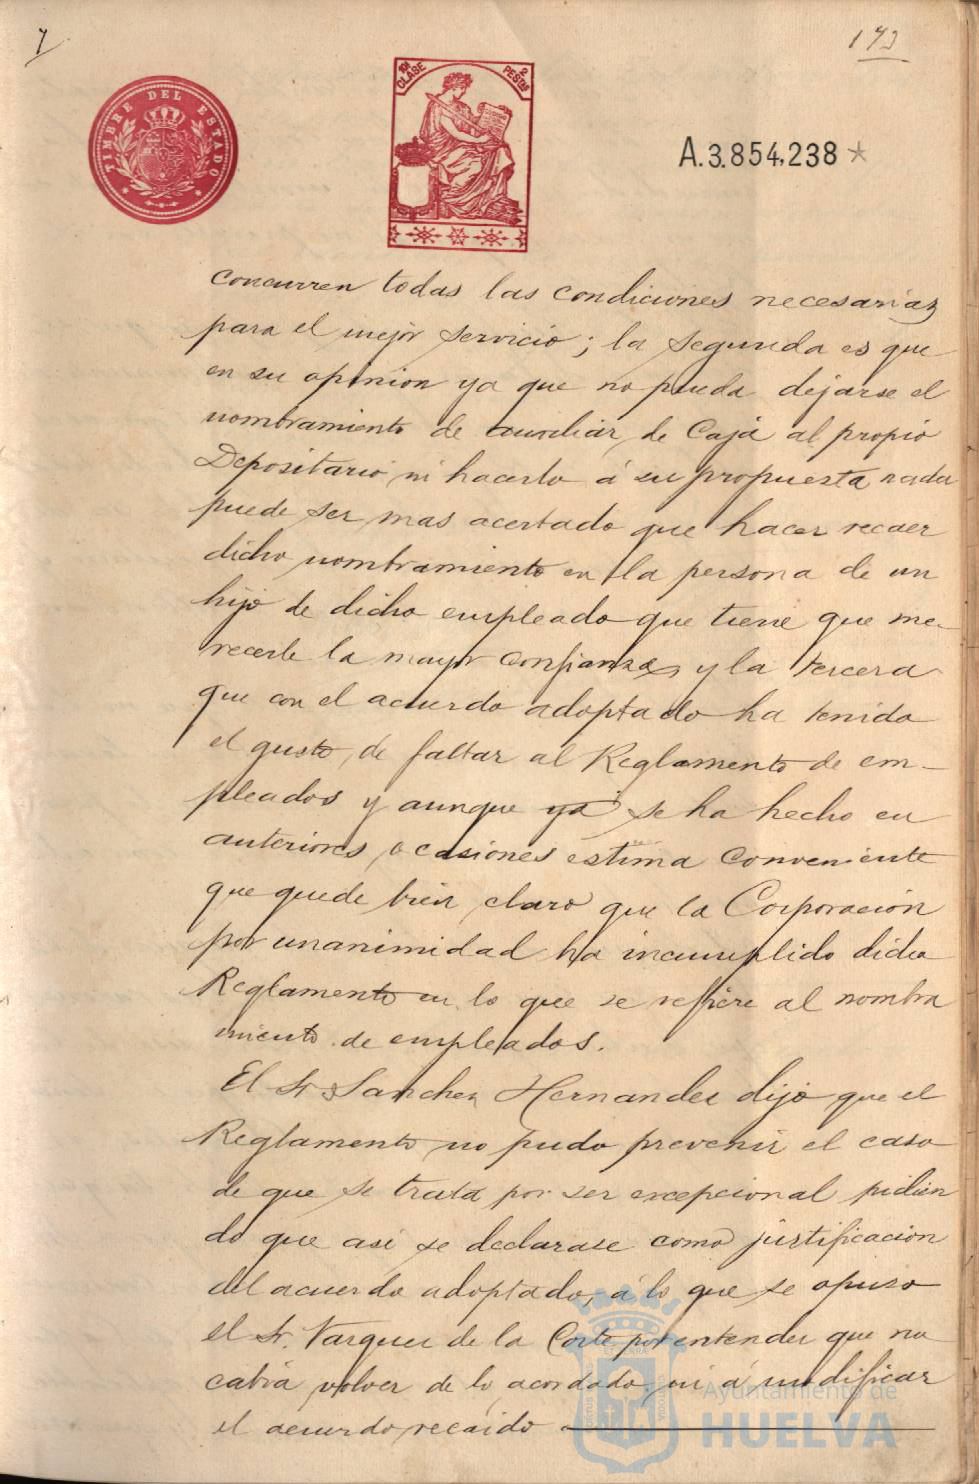 7
173
TIMBRE DEL ESTADO
10ª CLASE
2 PESTAS
A.3.854,238*
concurren todas las condiciones necesarias
para el mejor servicio; la segunda es que
en su opinion ya que no pueda dejarse el
nombramiento de auxiliar de Caja al propio
Depositario ni hacerlo á su propuesta nada
puede ser mas acertado que hacer recaer
dicho nombramiento en la persona de un
hijo de dicho empleado que tiene que me-
recerle la mayor confianza, y la tercera
que con el acuerdo adoptado ha tenido
el gusto de faltar al Reglamento de em-
pleados y aunque ya se ha hecho en
anteriores ocasiones estima conveniente
que quede bien claro que la Corporación
por unanimidad ha incumplido dicho
Reglamento en lo que se refiere al nombra
miento de empleados.
El Sr Sanchez Hernandez dijo que el
Reglamento no pudo prevenir el caso
de que se trata por ser excepcional pidien
do que asi se declarase como justificacion
del acuerdo adoptado, á lo que se opuso
el Sr. Vazquez de la Corte por entender que no
cabia volver de lo acordado ni á modificar
el acuerdo recaido
Ayuntamiento de
HUELVA